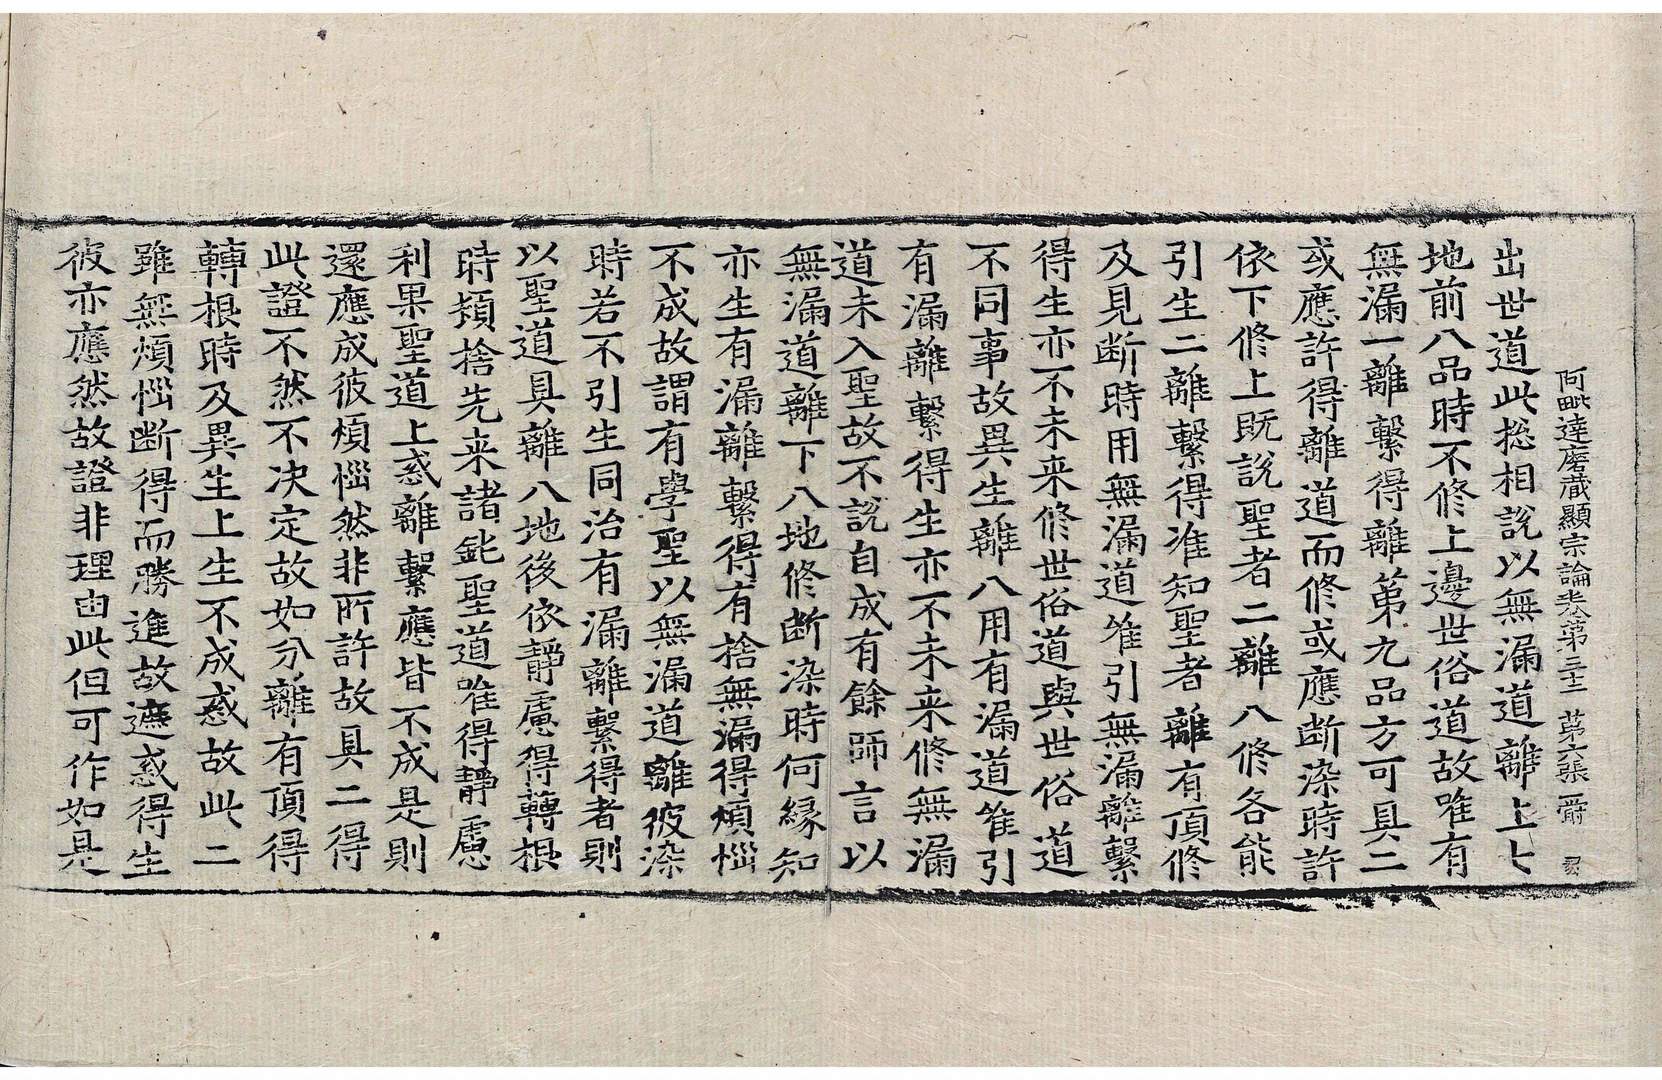 阿毗達磨藏顯宗論卷第三十三 第六張 爵
出世道此捴相說以無漏道離上七
地前八品時不修上邊世俗道故唯有
無漏一離繫得離第九品方可具二
或應許得離道而修或應断染時許
依下修上旣說聖者二離八修各能
引生二離繫得准知聖者離有頂修
及見断時用無漏道唯引無漏離繫
得生亦不未来修世俗道與世俗道
不同事故異生離八用有漏道唯引
有漏離繫得生亦不未来修無漏
道未入聖故不說自成有餘師言以
無漏道離下八地修断染時何緣知
亦生有漏離繫得有捨無漏得煩惱
不成故謂有學聖以無漏道離彼染
時若不引生同治有漏離繫得者則
以聖道具離八地後依靜慮得轉根
時頓捨先来諸鈍聖道唯得靜慮
利果聖道上惑離繫應皆不成是則
還應成彼煩惱然非所許故具二得
此證不然不决定故如分離有頂得
轉根時及異生上生不成惑故此二
雖無煩惱断得而勝進故遮惑得生
彼亦應然故證非理由此但可作如是